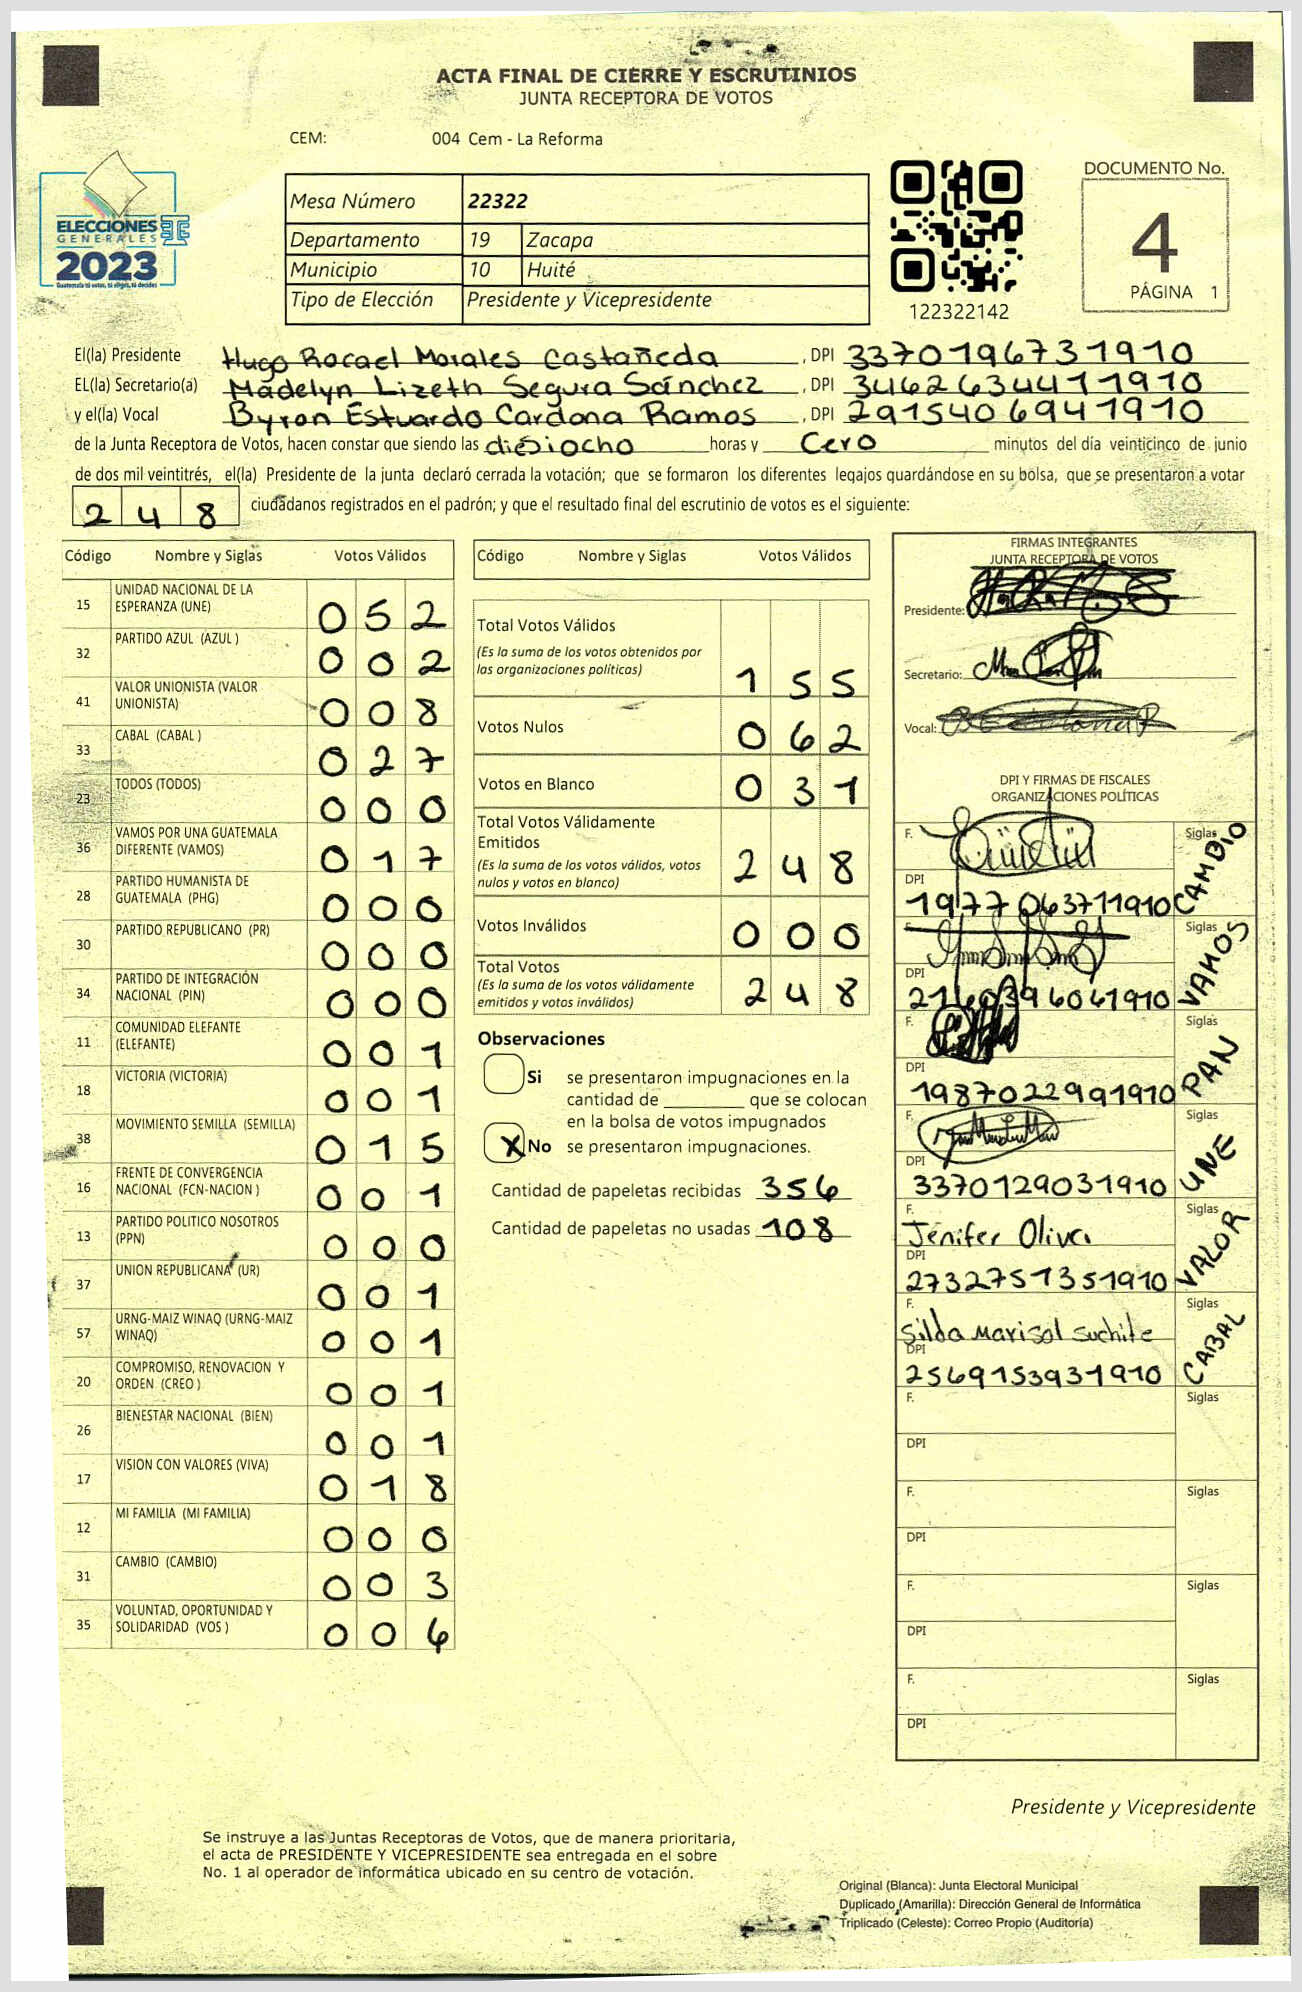 ACTA FINAL DE CIERRE Y ESCRUTINIOS
JUNTA RECEPTORA DE VOTOS
CEM: 004 Cem - La Reforma
ELECCIONES
GENERALES
2023
Guatemala tú votas, tú eliges, tú decides
Mesa Número 22322
Departamento 19 Zacapa
Municipio 10 Huité
Tipo de Elección Presidente y Vicepresidente
122322142
DOCUMENTO No.
4
PÁGINA 1
El(la) Presidente Hugo Rocael Morales Castañeda, DPI 3370196731910
EL(la) Secretario(a) Madelyn Lizeth Segura Sánchez, DPI 3462634411910
y el(la) Vocal Byron Estuardo Cardona Ramos, DPI 2915406941910
de la Junta Receptora de Votos, hacen constar que siendo las diesiocho horas y Cero minutos del día veinticinco de junio
de dos mil veintitrés, el(la) Presidente de la junta declaró cerrada la votación; que se formaron los diferentes legajos guardándose en su bolsa, que se presentaron a votar
248 ciudadanos registrados en el padrón; y que el resultado final del escrutinio de votos es el siguiente:
Código Nombre y Siglas Votos Válidos
15 UNIDAD NACIONAL DE LA ESPERANZA (UNE) 052
32 PARTIDO AZUL (AZUL ) 002
41 VALOR UNIONISTA (VALOR UNIONISTA) 008
33 CABAL (CABAL ) 027
23 TODOS (TODOS) 000
36 VAMOS POR UNA GUATEMALA DIFERENTE (VAMOS) 017
28 PARTIDO HUMANISTA DE GUATEMALA (PHG) 000
30 PARTIDO REPUBLICANO (PR) 000
34 PARTIDO DE INTEGRACIÓN NACIONAL (PIN) 000
11 COMUNIDAD ELEFANTE (ELEFANTE) 001
18 VICTORIA (VICTORIA) 001
38 MOVIMIENTO SEMILLA (SEMILLA) 015
16 FRENTE DE CONVERGENCIA NACIONAL (FCN-NACION ) 001
13 PARTIDO POLITICO NOSOTROS (PPN) 000
37 UNION REPUBLICANA (UR) 001
57 URNG-MAIZ WINAQ (URNG-MAIZ WINAQ) 001
20 COMPROMISO, RENOVACION Y ORDEN (CREO ) 001
26 BIENESTAR NACIONAL (BIEN) 001
17 VISION CON VALORES (VIVA) 018
12 MI FAMILIA (MI FAMILIA) 000
31 CAMBIO (CAMBIO) 003
35 VOLUNTAD, OPORTUNIDAD Y SOLIDARIDAD (VOS ) 006
Código Nombre y Siglas Votos Válidos
Total Votos Válidos
(Es la suma de los votos obtenidos por
las organizaciones políticas) 155
Votos Nulos 062
Votos en Blanco 031
Total Votos Válidamente
Emitidos
(Es la suma de los votos válidos, votos
nulos y votos en blanco) 248
Votos Inválidos 000
Total Votos
(Es la suma de los votos válidamente
emitidos y votos inválidos) 248
Observaciones
Si se presentaron impugnaciones en la
cantidad de ________ que se colocan
en la bolsa de votos impugnados
X No se presentaron impugnaciones.
Cantidad de papeletas recibidas 356
Cantidad de papeletas no usadas 108
FIRMAS INTEGRANTES
JUNTA RECEPTORA DE VOTOS
Presidente:
Secretario:
Vocal:
DPI Y FIRMAS DE FISCALES
ORGANIZACIONES POLÍTICAS
F. Siglas CAMBIO
DPI 1977063711910
F. Siglas VAMOS
DPI 2160396061910
F. Siglas PAN
DPI 1987022991910
F. Siglas UNE
DPI 3370129031910
F. Jenifer Oliva Siglas VALOR
DPI 2732751351910
F. Silda Marisol Suchite Siglas CABAL
DPI 2569153931910
F. Siglas
DPI
F. Siglas
DPI
F. Siglas
DPI
F. Siglas
DPI
Presidente y Vicepresidente
Se instruye a las Juntas Receptoras de Votos, que de manera prioritaria,
el acta de PRESIDENTE Y VICEPRESIDENTE sea entregada en el sobre
No. 1 al operador de informática ubicado en su centro de votación.
Original (Blanca): Junta Electoral Municipal
Duplicado (Amarilla): Dirección General de Informática
Triplicado (Celeste): Correo Propio (Auditoría)